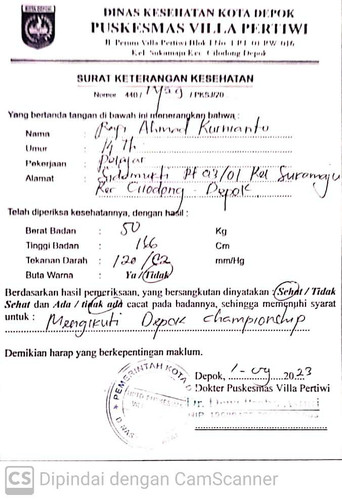 DINAS KESEHATAN KOTA DEPOK
PUSKESMAS VILLA PERTIWI
Jl. Perum Villa Pertiwi Blok I No. 1 RT. 01 RW. 016
Kel. Sukamaju Kec. Cilodong Depok
SURAT KETERANGAN KESEHATAN
Nomor 440 / 1459 / PKSJ/20
Yang bertanda tangan di bawah ini menerangkan bahwa :
Nama : Rafi Ahmad Kurnianto
Umur : 14 Th
Pekerjaan : Pelajar
Alamat : Sidamukti Rt 03/01 Kel Sukamaju
Kec Cilodong - Depok
Telah diperiksa kesehatannya, dengan hasil :
Berat Badan : 50 Kg
Tinggi Badan : 166 Cm
Tekanan Darah : 120 / 82 mm/Hg
Buta Warna : Ya/Tidak
Berdasarkan hasil pemeriksaan, yang bersangkutan dinyatakan : Sehat / Tidak
Sehat dan Ada / tidak ada cacat pada badannya, sehingga memenuhi syarat
untuk : Mengikuti Depok championship
Demikian harap yang berkepentingan maklum.
Depok, 2023
Dokter Puskesmas Villa Pertiwi
PEMERINTAH KOTA
DINAS
NIP.
CS Dipindai dengan CamScanner